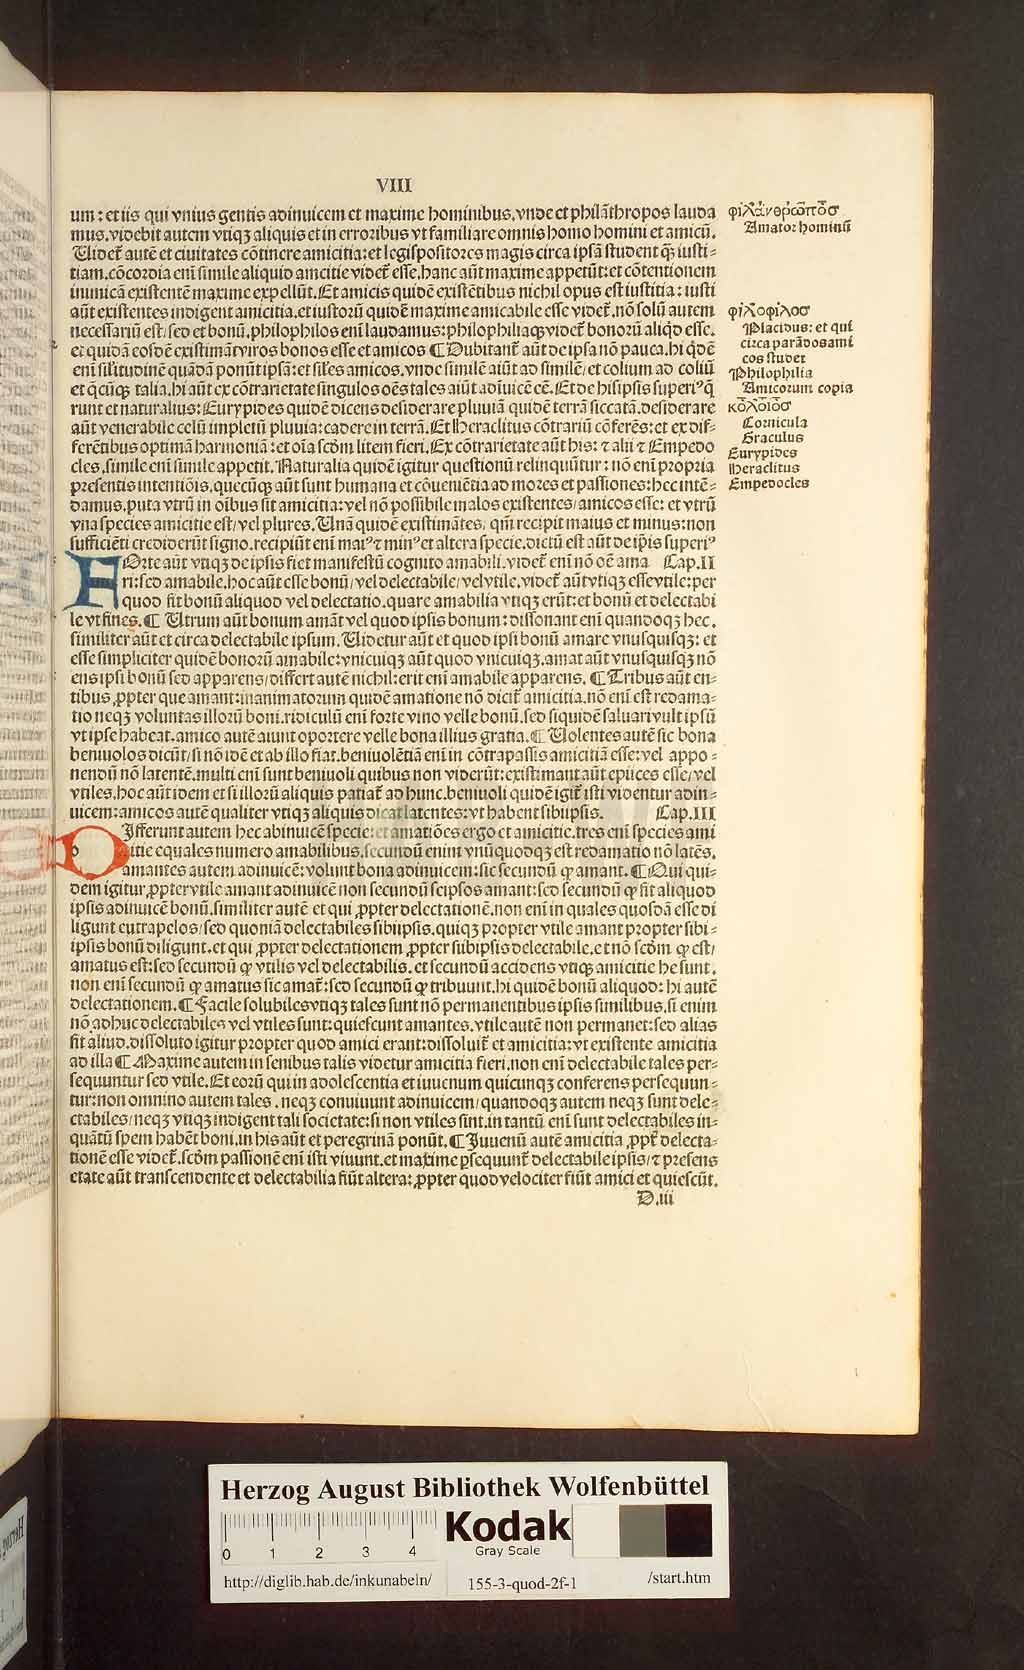 VIII
um: et iis qui vnius gentis adinuicem et maxime hominibus, vnde et philãthropos lauda
mus. videbit autem vtiqȝ aliquis et in erroribus vt familiare omnis homo homini et amicũ.
Uidet᷑ autẽ et ciuitates cõtinere amicitia: et legispositores magis circa ipsã student q̃ȝ iusti⸗
tiam. cõcordia eni simile aliquid amcitie videt᷑ esse. hanc aũt maxime appetũt: et cõtentionem
inimicã existentẽ maxime expellũt. Et amicis quidẽ existẽtibus nichil opus est iustitia: iusti
aũt existentes indigent amicitia. et iustorũ quidẽ maxime amicabile esse videt᷑. nõ solũ autem
necessariũ est/ sed et bonũ. philophilos eni laudamus: philophiliaqȝ videt᷑ bonorũ aliqd esse.
et quidã eosdẽ existimãt viros bonos esse et amicos ¶ Dubitant᷑ aũt de ipsa nõ pauca. hi qdẽ
eni silitudinẽ quãdã ponũt ipsã: et siles amicos. vnde similẽ aiũt ad similẽ/ et colium ad coliũ
et q̃cũqȝ talia. hi aũt ex cõtrarietate singulos oẽs tales aiũt adinuicẽ eẽ. Et de his ipsis superiꝰ q̃
runt et naturalius: Eurypides quidẽ dicens desiderare pluuiã quidẽ terrã siccatã. desiderare
aũt venerabile celũ impletũ pluuia: cadere in terrã. Et Heraclitus cõtrariũ cõferẽs: et ex dif⸗
ferẽtibus optimã harmoniã: et oĩa scd̃m litem fieri. Ex cõtrarietate aũt his: ⁊ alii ⁊ Empedo
cles. simile eni simile appetit. Naturalia quidẽ igitur questionũ relinquũtur: nõ eni propria
presentis intentiõis. quecũqȝ aũt sunt humana et cõueniẽtia ad mores et passiones: hec intẽ⸗
damus. puta vtrũ in oĩbus sit amicitia: vel nõ possibile malos existentes/ amicos esse: et vtrũ
vna species amicitie est/ vel plures. Unã quidẽ existimãtes/ qm̃ recipit maius et minus: non
sufficiẽti crediderũt signo. recipiũt eni maiꝰ ⁊ minꝰ et altera specie. dictũ est aũt de ip̃is superiꝰ
FOrte aũt vtiqȝ de ipsis fiet manifestũ cognito amabili. videt᷑ eni nõ oẽ ama Cap. II
ri: sed amabile. hoc aũt esse bonũ/ vel delectabile/ vel vtile. videt᷑ aũt vtiqȝ esse vtile: per
quod fit bonũ aliquod vel delectatio. quare amabilia vtiqȝ erũt: et bonũ et delectabi
le vt fines. ¶ Utrum aũt bonum amãt vel quod ipsis bonum: dissonant eni quandoqȝ hec.
similiter aũt et circa delectabile ipsum. Uidetur aũt et quod ipsi bonũ amare vnusquisqȝ: et
esse simpliciter quidẽ bonorũ amabile: vnicuiqȝ aũt quod vnicuiqȝ. amat aũt vnusquisqȝ nõ
ens ipsi bonũ sed apparens/ differt autẽ nichil: erit eni amabile apparens. ¶ Tribus aũt en⸗
tibus ꝓpter que amant: inanimatorum quidẽ amatione nõ dicit᷑ amicitia. nõ eni est redama⸗
tio neqȝ voluntas illorũ boni. ridiculũ eni forte vino velle bonũ. sed siquidẽ saluari vult ipsũ
vt ipse habeat. amico autẽ aiunt oportere velle bona illius gratia. ¶ Uolentes autẽ sic bona
beniuolos dicũt/ si nõ idẽ et ab illo fiat. beniuolẽtiã eni in cõtrapassis amicitiã esse: vel appo⸗
nendũ nõ latentẽ. multi eni sunt beniuoli quibus non viderũt: existimant aũt epiices esse/ vel
vtiles. hoc aũt idem et si illorũ aliquis patiat᷑ ad hunc. beniuoli quidẽ igit᷑ isti videntur adin⸗
uicem: amicos autẽ qualiter vtiqȝ aliquis dicat latentes: vt habent sibiipsis. Cap. III
DIfferunt autem hec abinuicẽ specie: et amatiões ergo et amicitie. tres eni species ami
citie equales numero amabilibus. secundũ enim vnũ quodqȝ est redamatio nõ latẽs.
amantes autem adinuicẽ: volunt bona adinuicem: sic secundũ ꝙ amant. ¶ Qui qui⸗
dem igitur ꝓpter vtile amant adinuicẽ non secundũ seipsos amant: sed secundũ ꝙ fit aliquod
ipsis adinuicẽ bonũ. similiter autẽ et qui ꝓpter delectationẽ. non eni in quales quosdã esse di
ligunt eutrapelos/ sed quoniã delectabiles sibiipsis. quiqȝ propter vtile amant propter sibi⸗
ipsis bonũ diligunt. et qui ꝓpter delectationem ꝓpter siibipsis delectabile. et nõ scd̃m ꝙ est/
amatus est: sed secundũ ꝙ vtilis vel delectabilis. et secundũ accidens vtiqȝ amicitie he sunt.
non eni secundũ ꝙ amatus sic amat᷑: sed secundũ ꝙ tribuunt. hi quidẽ bonũ aliquod: hi autẽ
delectationem. ¶ Facile solubiles vtiqȝ tales sunt nõ permanentibus ipsis similibus. si enim
nõ adhuc delectabiles vel vtiles sunt: quiescunt amantes. vtile autẽ non permanet: sed alias
fit aliud. dissoluto igitur propter quod amici erant: dissoluit᷑ et amicitia: vt existente amicitia
ad illa ¶ Maxime autem in senibus talis videtur amicitia fieri. non eni delectabile tales per⸗
sequuntur sed vtile. Et eorũ qui in adolescentia et iuuenum quicunqȝ conferens persequun⸗
tur: non omnino autem tales. neqȝ conuiuunt adinuicem/ quandoqȝ autem neqȝ sunt dele⸗
ctabiles/ neqȝ vtiqȝ indigent tali societate: si non vtiles sint. in tantũ eni sunt delectabiles in⸗
quãtũ spem habẽt boni. in his aũt et peregrinã ponũt. ¶ Juuenũ autẽ amicitia ꝓpt᷑ delecta⸗
tionẽ esse videt᷑. scd̃m passionẽ eni isti viuunt. et maxime ꝑsequunt᷑ delectabile ipsis/ ⁊ presens
etate aũt transcendente et delectabilia fiũt altera: ꝓpter quod velociter fiũt amici et quiescũt.
D. iii
φιλάνθρωποσ
Amator hominũ
φιλοφιλοσ
Placidus: et qui
circa parãdos ami
cos studet
Philophilia
Amicorum copia
κολοιοσ
Cornicula
Graculus
Eurypides
Heraclitus
Empedocles
Herzog August Bibliothek Wolfenbüttel
0 1 2 3 4
Kodak
Gray Scale
http://diglib.hab.de/inkunabeln/ 155-3-quod-2f-1 /start.htm